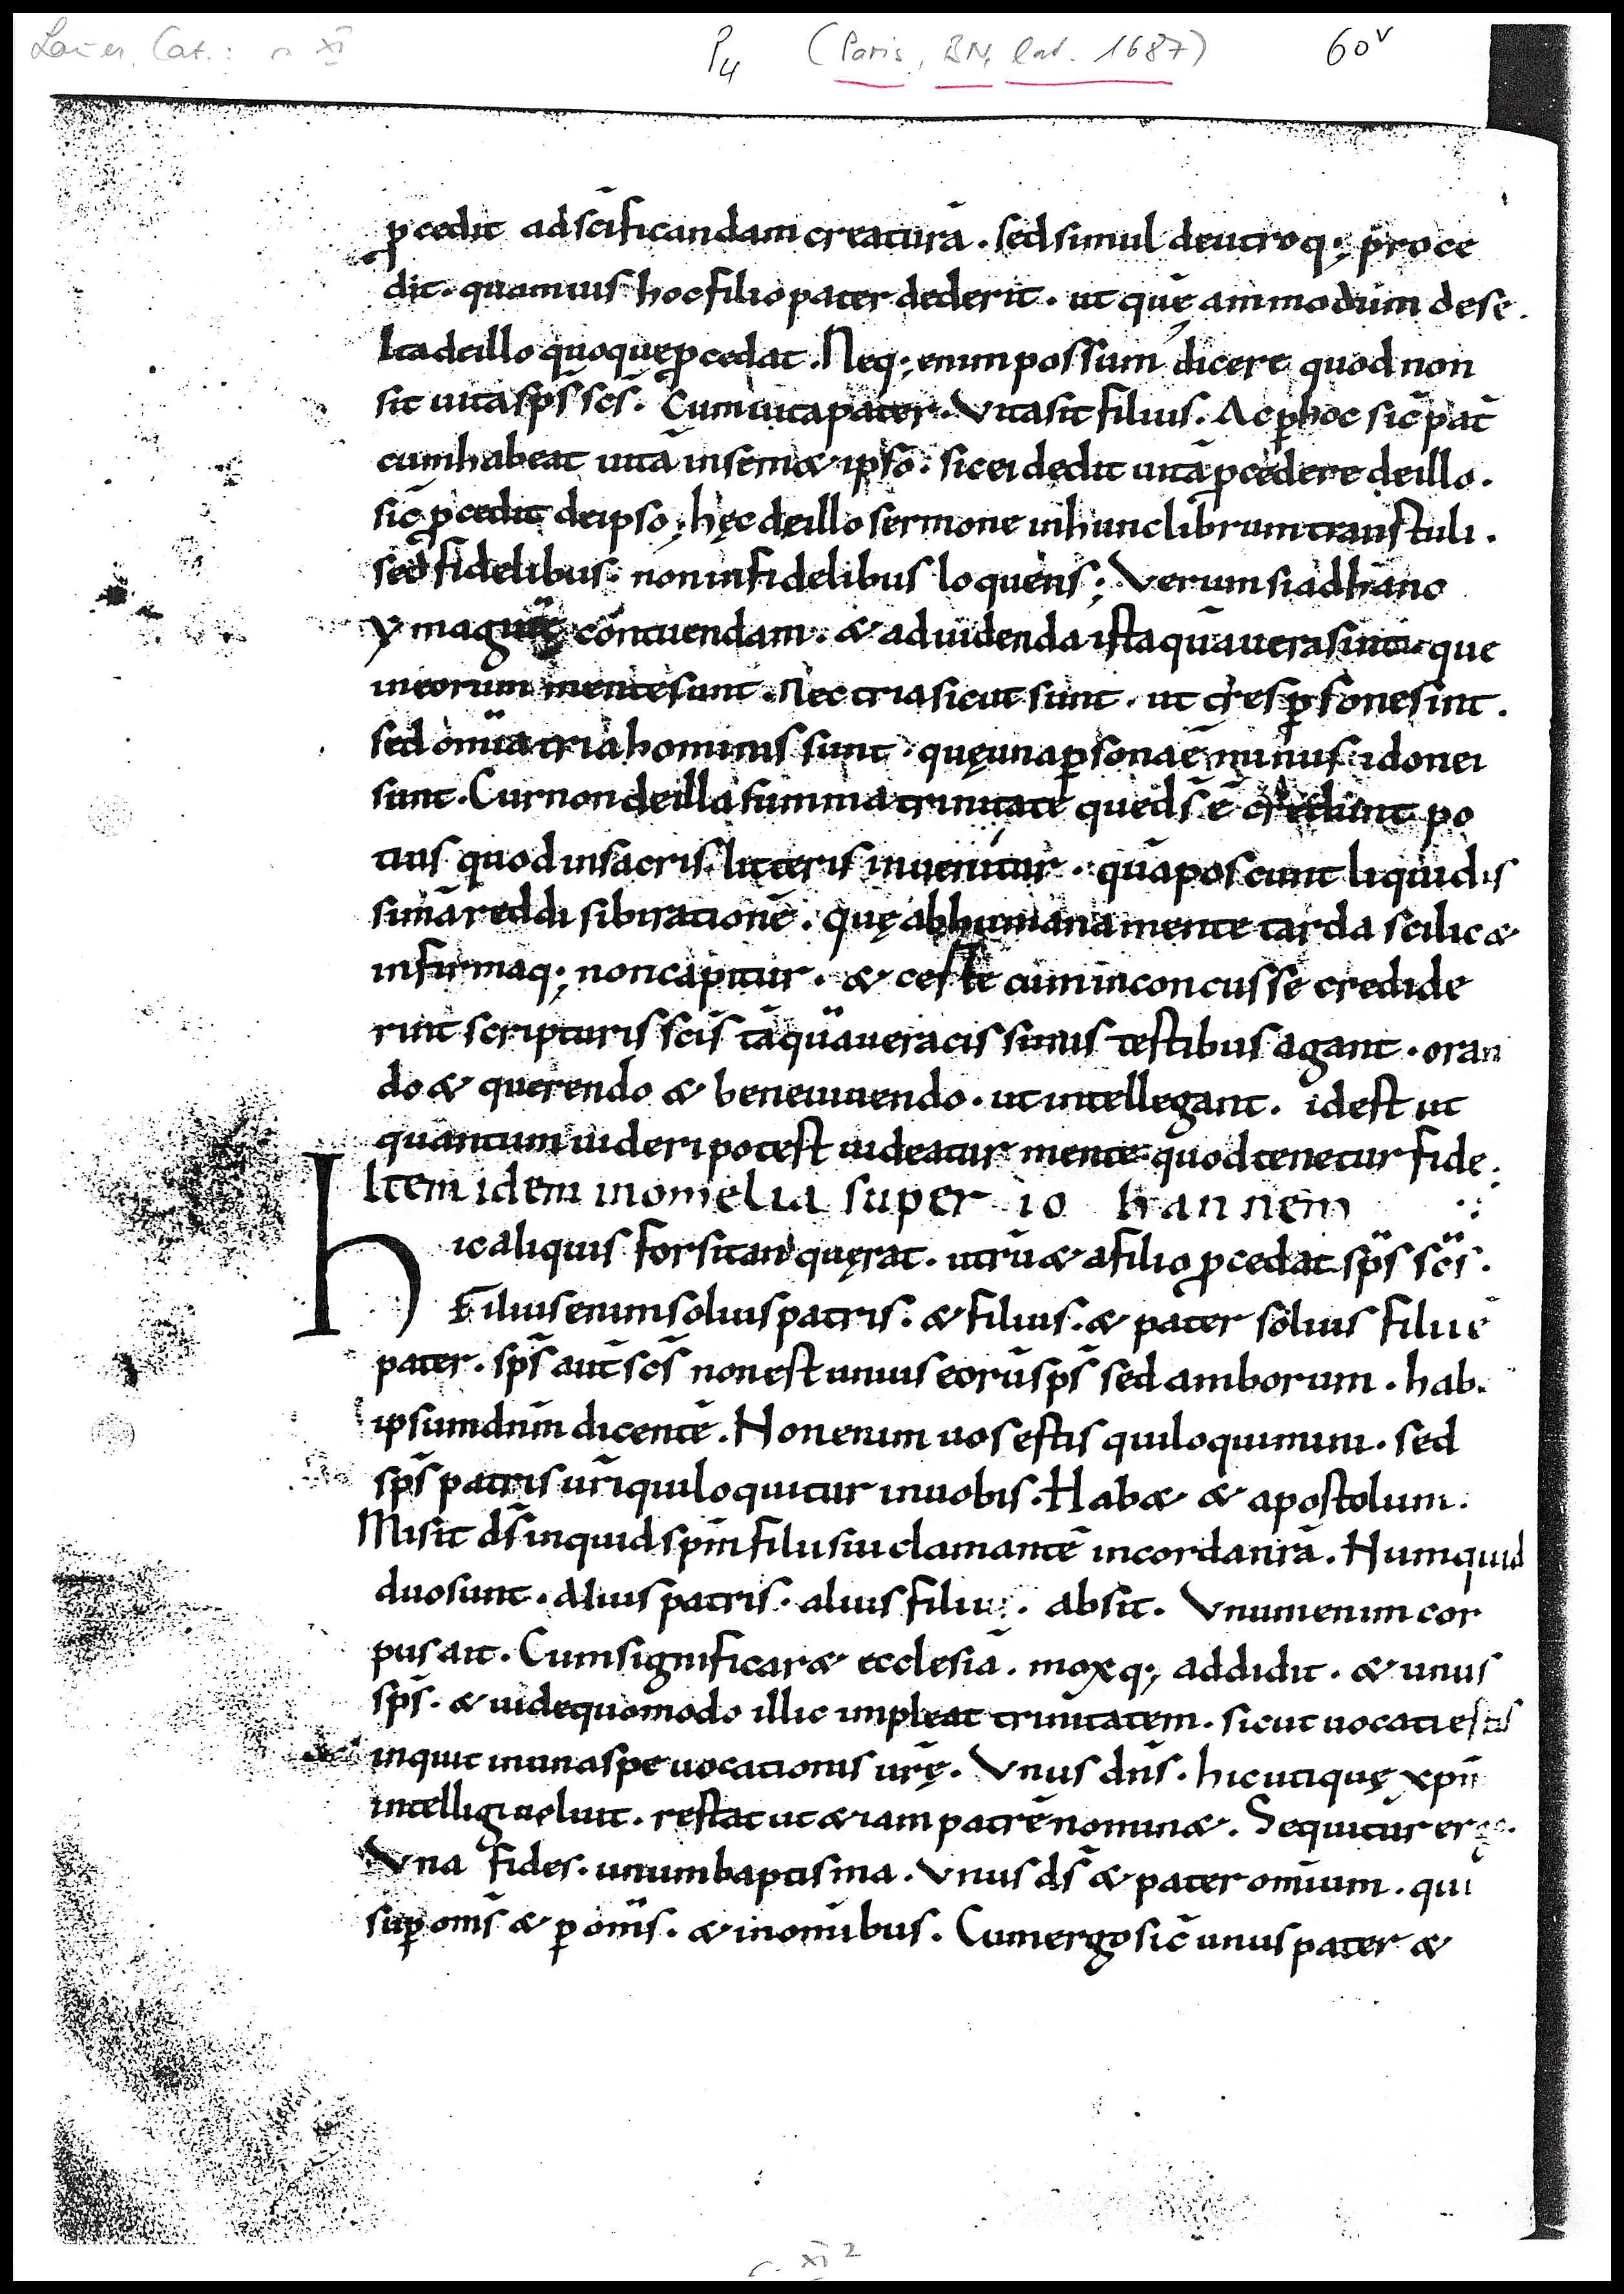 Lauer, Cat.: n XI
P4 (Paris, BN, lat. 1687) 60v
p̱cedit ad sc̄ificandam creaturā. sed simul deutroq; proce
dit. quamuis hoc filio pater dederit. ut quē ammodum de se.
Ita deillo quoque p̱cedat. Neq; enim possum' dicere quod non
sit uita sp̄s sc̄s. Cum uita pater. Vita sit filius. Ac p̱hoc sic̄ pat̄
cum habeat uitā in sem& ipso. sic ei dedit uitā p̱cedere deillo.
sic̄ p̱cedit de ipso; hęc deillo sermone in hunc librum transtuli.
sed fidelibus. non infidelibus loquens; Verum si ad hanc
ymaginē contuendam. & ad uidenda ista quā uera sint. que
in eorum mente sunt. Nec tria sicut sunt. ut tres p̱sone sint.
sed omīa tria hominis sunt. quę una p̱sona ē minus idonei
sunt. Cur non de illa summa trinitate que ds̄ ē credunt po
tius quod in sacris litteris inuenitur. quā poscunt liquidis
simā reddi sibi rationē. quę ab humana mente tarda scilic&
infirmaq; non capitur. & certe cum inconcusse credide
rint scripturis sc̄is tāquā ueracissimis testibus agant. oran
do & querendo & bene uiuendo. ut intellegant. id est ut
quantum uideri potest uideatur mente quod tenetur fide;
Item idem in omelia super io hannem
hic aliquis forsitan quęrat. utrū & a filio p̱cedat sp̄s sc̄s.
Filius enim solius patris. & filius. & pater solius filii ē
pater. sp̄s aut̄ sc̄s non est unius eorū sp̄s sed amborum. hab.
ipsum dn̄m dicentē. Non enim uos estis qui loquimini. sed
sp̄s patris ur̄i qui loquitur in uobis. Hab& & apostolum.
Misit ds̄ inquid sp̄m filii sui clamantē in corda nr̄a. Numquid
duo sunt. alius patris. alius filii. absit. Vnum enim cor
pus ait. Cum significar& ecclesiā. moxq; addidit. & unus
sp̄s. & uide quomodo illic impleat trinitatem. sicut uocati estis
inquit in una spe uocationis ur̄ę. Vnus dn̄s. hic utique xp̄m
intelligi uoluit. restat ut & iam patrē nomin&. Sequitur ergo.
Vna fides. unum baptisma. Vnus ds̄ & pater omīum. qui
sup̱ om̄s & p̱ om̄s. & in omībus. Cum ergo sic̄ unus pater &
c. XI 2